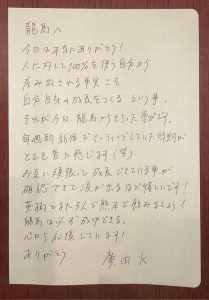 龍馬へ
今日は本当にありがとう!
人に対して100%を使う自分から
産み出される事実こそ
自分自身の成長をつくるという事。
それが今日龍馬からもらった学びです。
毎週新宿でミーティングしていた時期が
とても昔に感じます(笑)
お互い頑張って成長できている事が
確認できて涙が出るほど嬉しいです!
英樹とまた3人で熊本で飲みましょう!
龍馬は必ず成功できる。
心から応援しています!
ありがとう
廣田 K